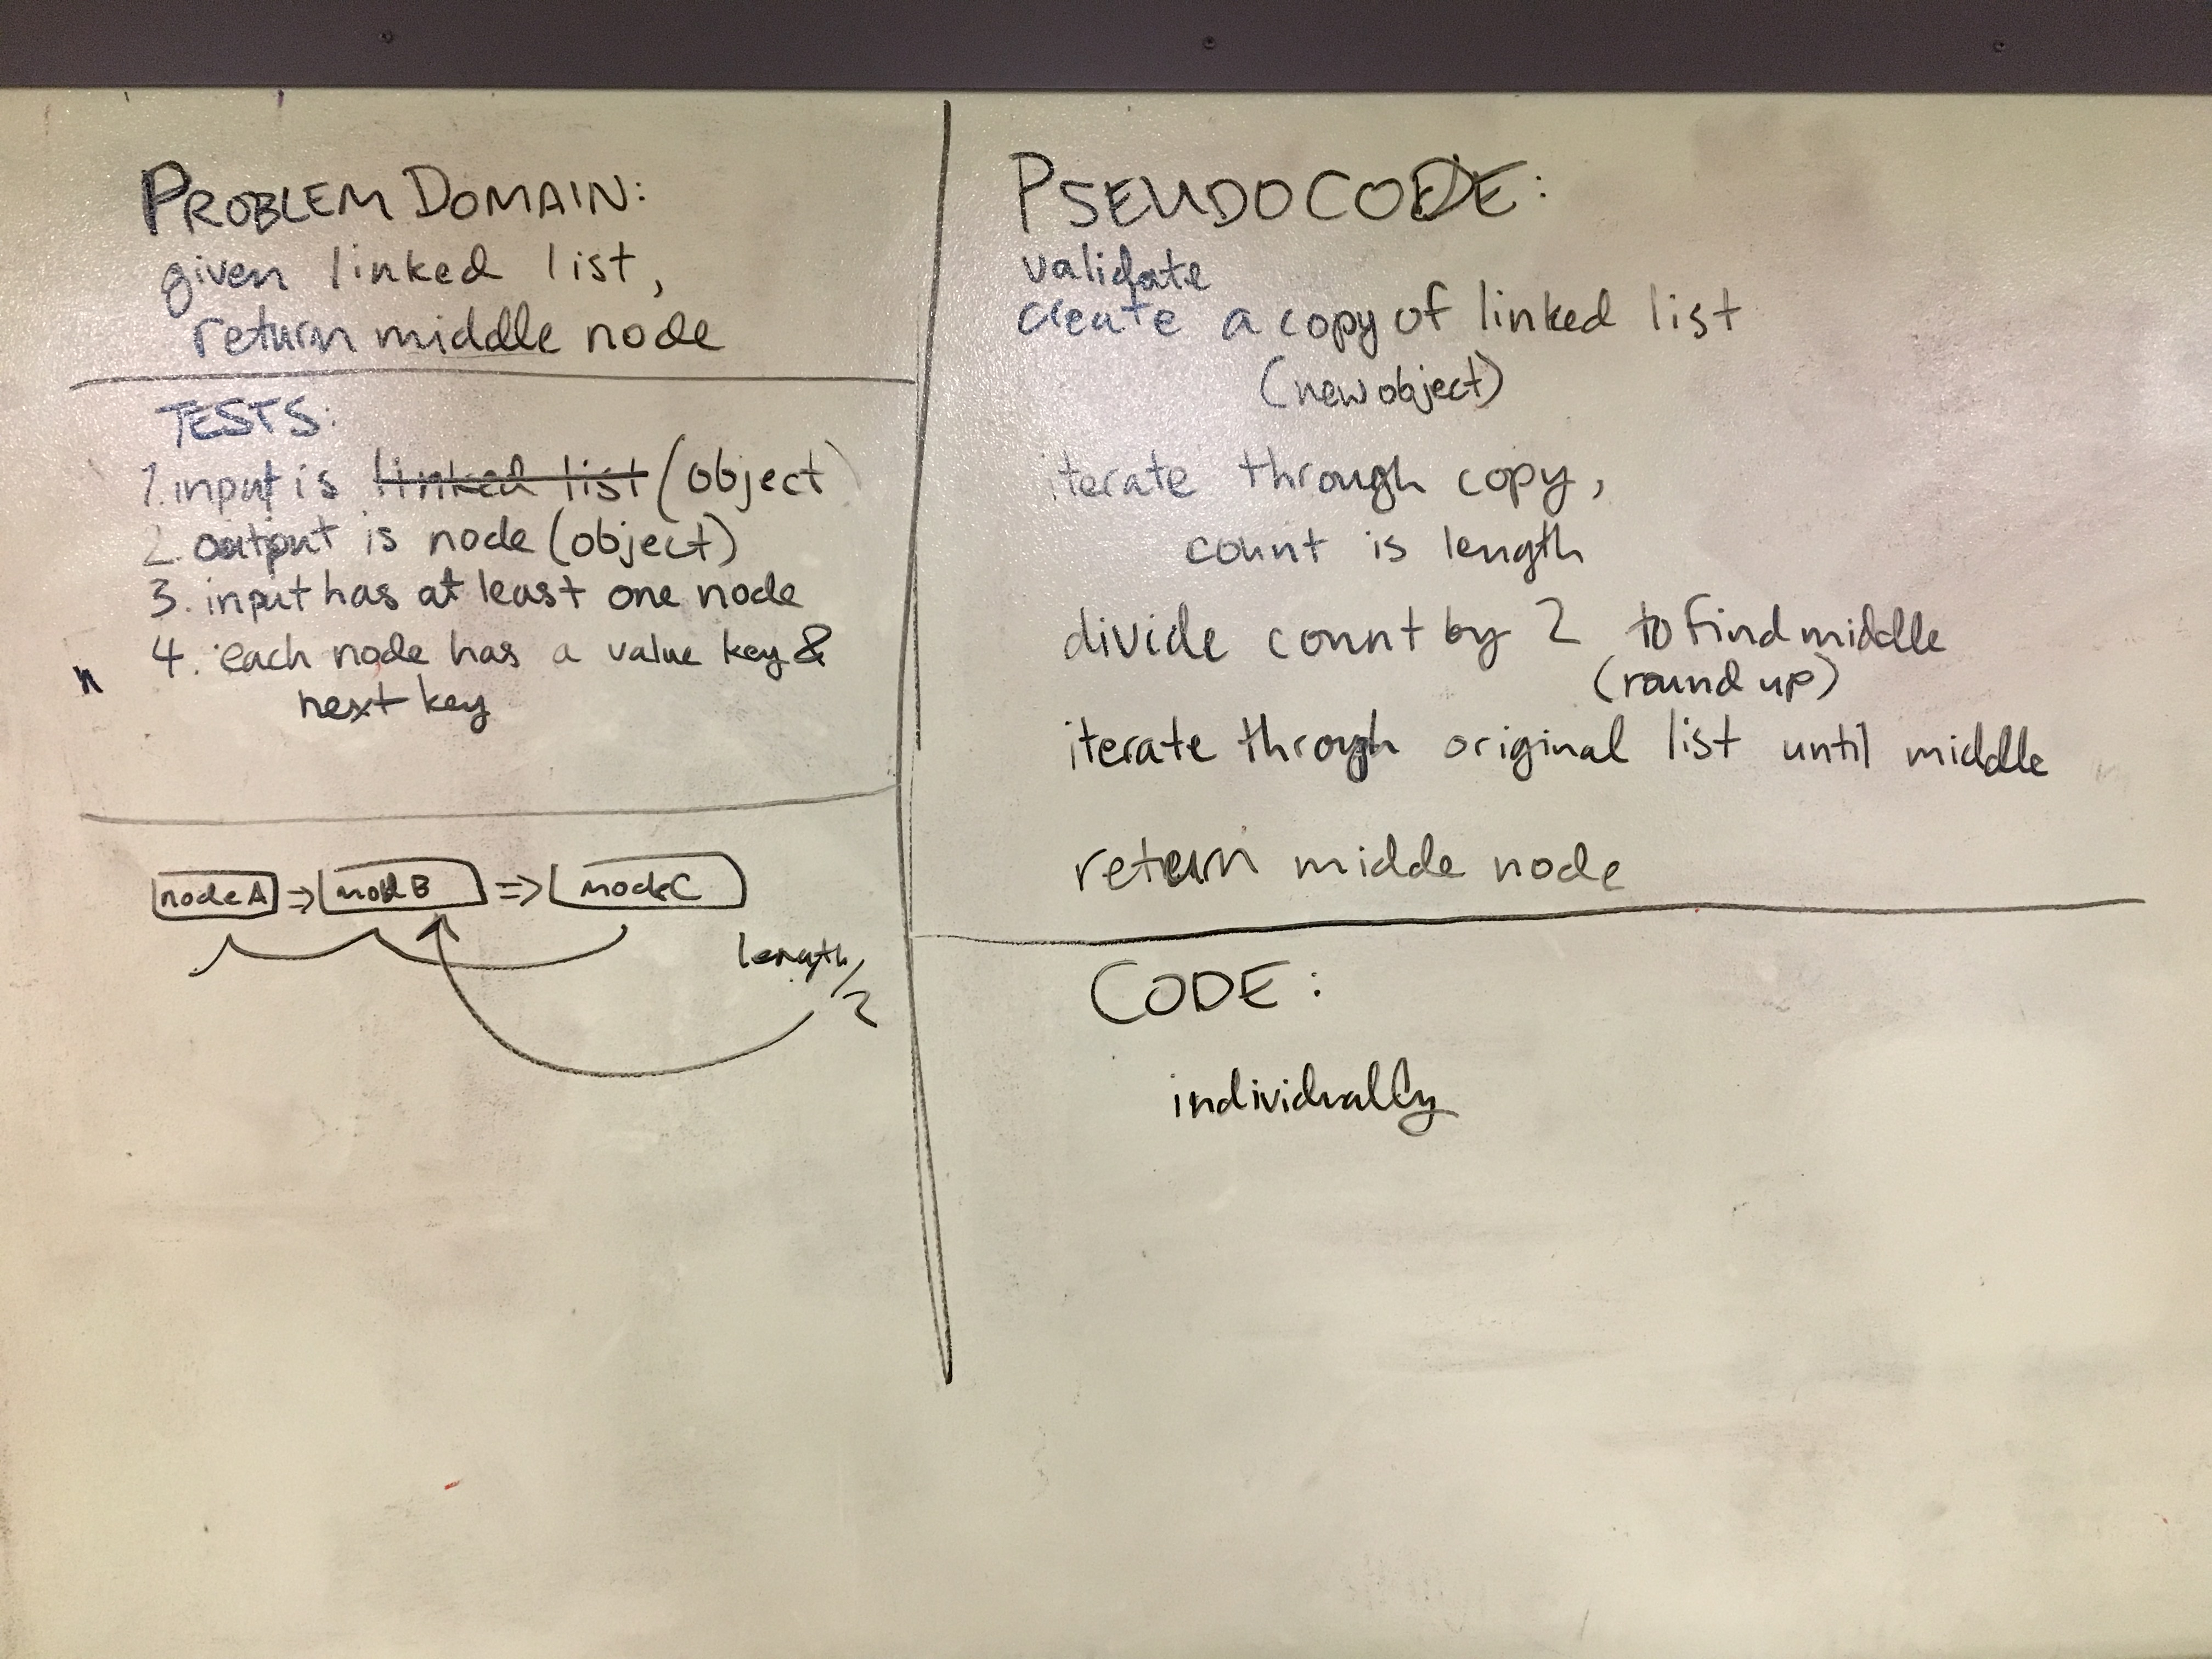 PROBLEM DOMAIN:
given linked list,
return middle node
TESTS:
1. input is linked list (object)
2. output is node (object)
3. input has at least one node
4. each node has a value key &
n
next key
node A => node B => node C
length/2
PSEUDOCODE:
validate
create a copy of linked list
(new object)
iterate through copy,
count is length
divide count by 2 to find middle
(round up)
iterate through original list until middle
return midde node
CODE:
individually